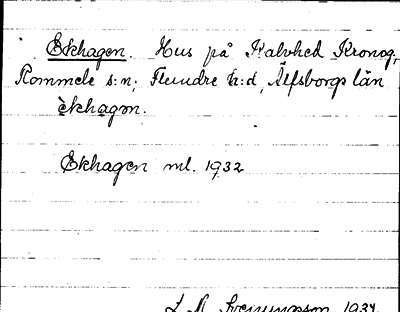 Ekhagen. Hus på Halvhed Kronog,
Rommele s:n; Flundre h:d, Älfsborgs län
èkhagən.
Ekhagen ml. 1932
1934